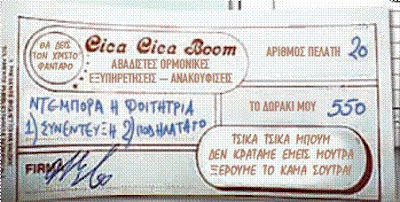 ΘΑ ΔΕΙΣ
ΤΟΝ ΧΡΗΣΤΟ
ΦΑΝΤΑΡΟ
Cica Cica Boom
ΑΒΑΔΙΣΤΕΣ ΟΡΜΟΝΙΚΕΣ
ΕΞΥΠΗΡΕΤΗΣΕΙΣ — ΑΝΑΚΟΥΦΙΣΕΙΣ
ΑΡΙΘΜΟΣ ΠΕΛΑΤΗ 20
ΝΤΕΜΠΟΡΑ Η ΦΟΙΤΗΤΡΙΑ
1) ΣΥΝΕΝΤΕΥΞΗ 2) ΠΟΔΗΛΑΤΑΓΟ
ΤΟ ΔΩΡΑΚΙ ΜΟΥ 550
FIRMA
ΤΣΙΚΑ ΤΣΙΚΑ ΜΠΟΥΜ
ΔΕΝ ΚΡΑΤΑΜΕ ΕΜΕΙΣ ΜΟΥΤΡΑ
ΞΕΡΟΥΜΕ ΤΟ ΚΑΜΑ ΣΟΥΤΡΑ!